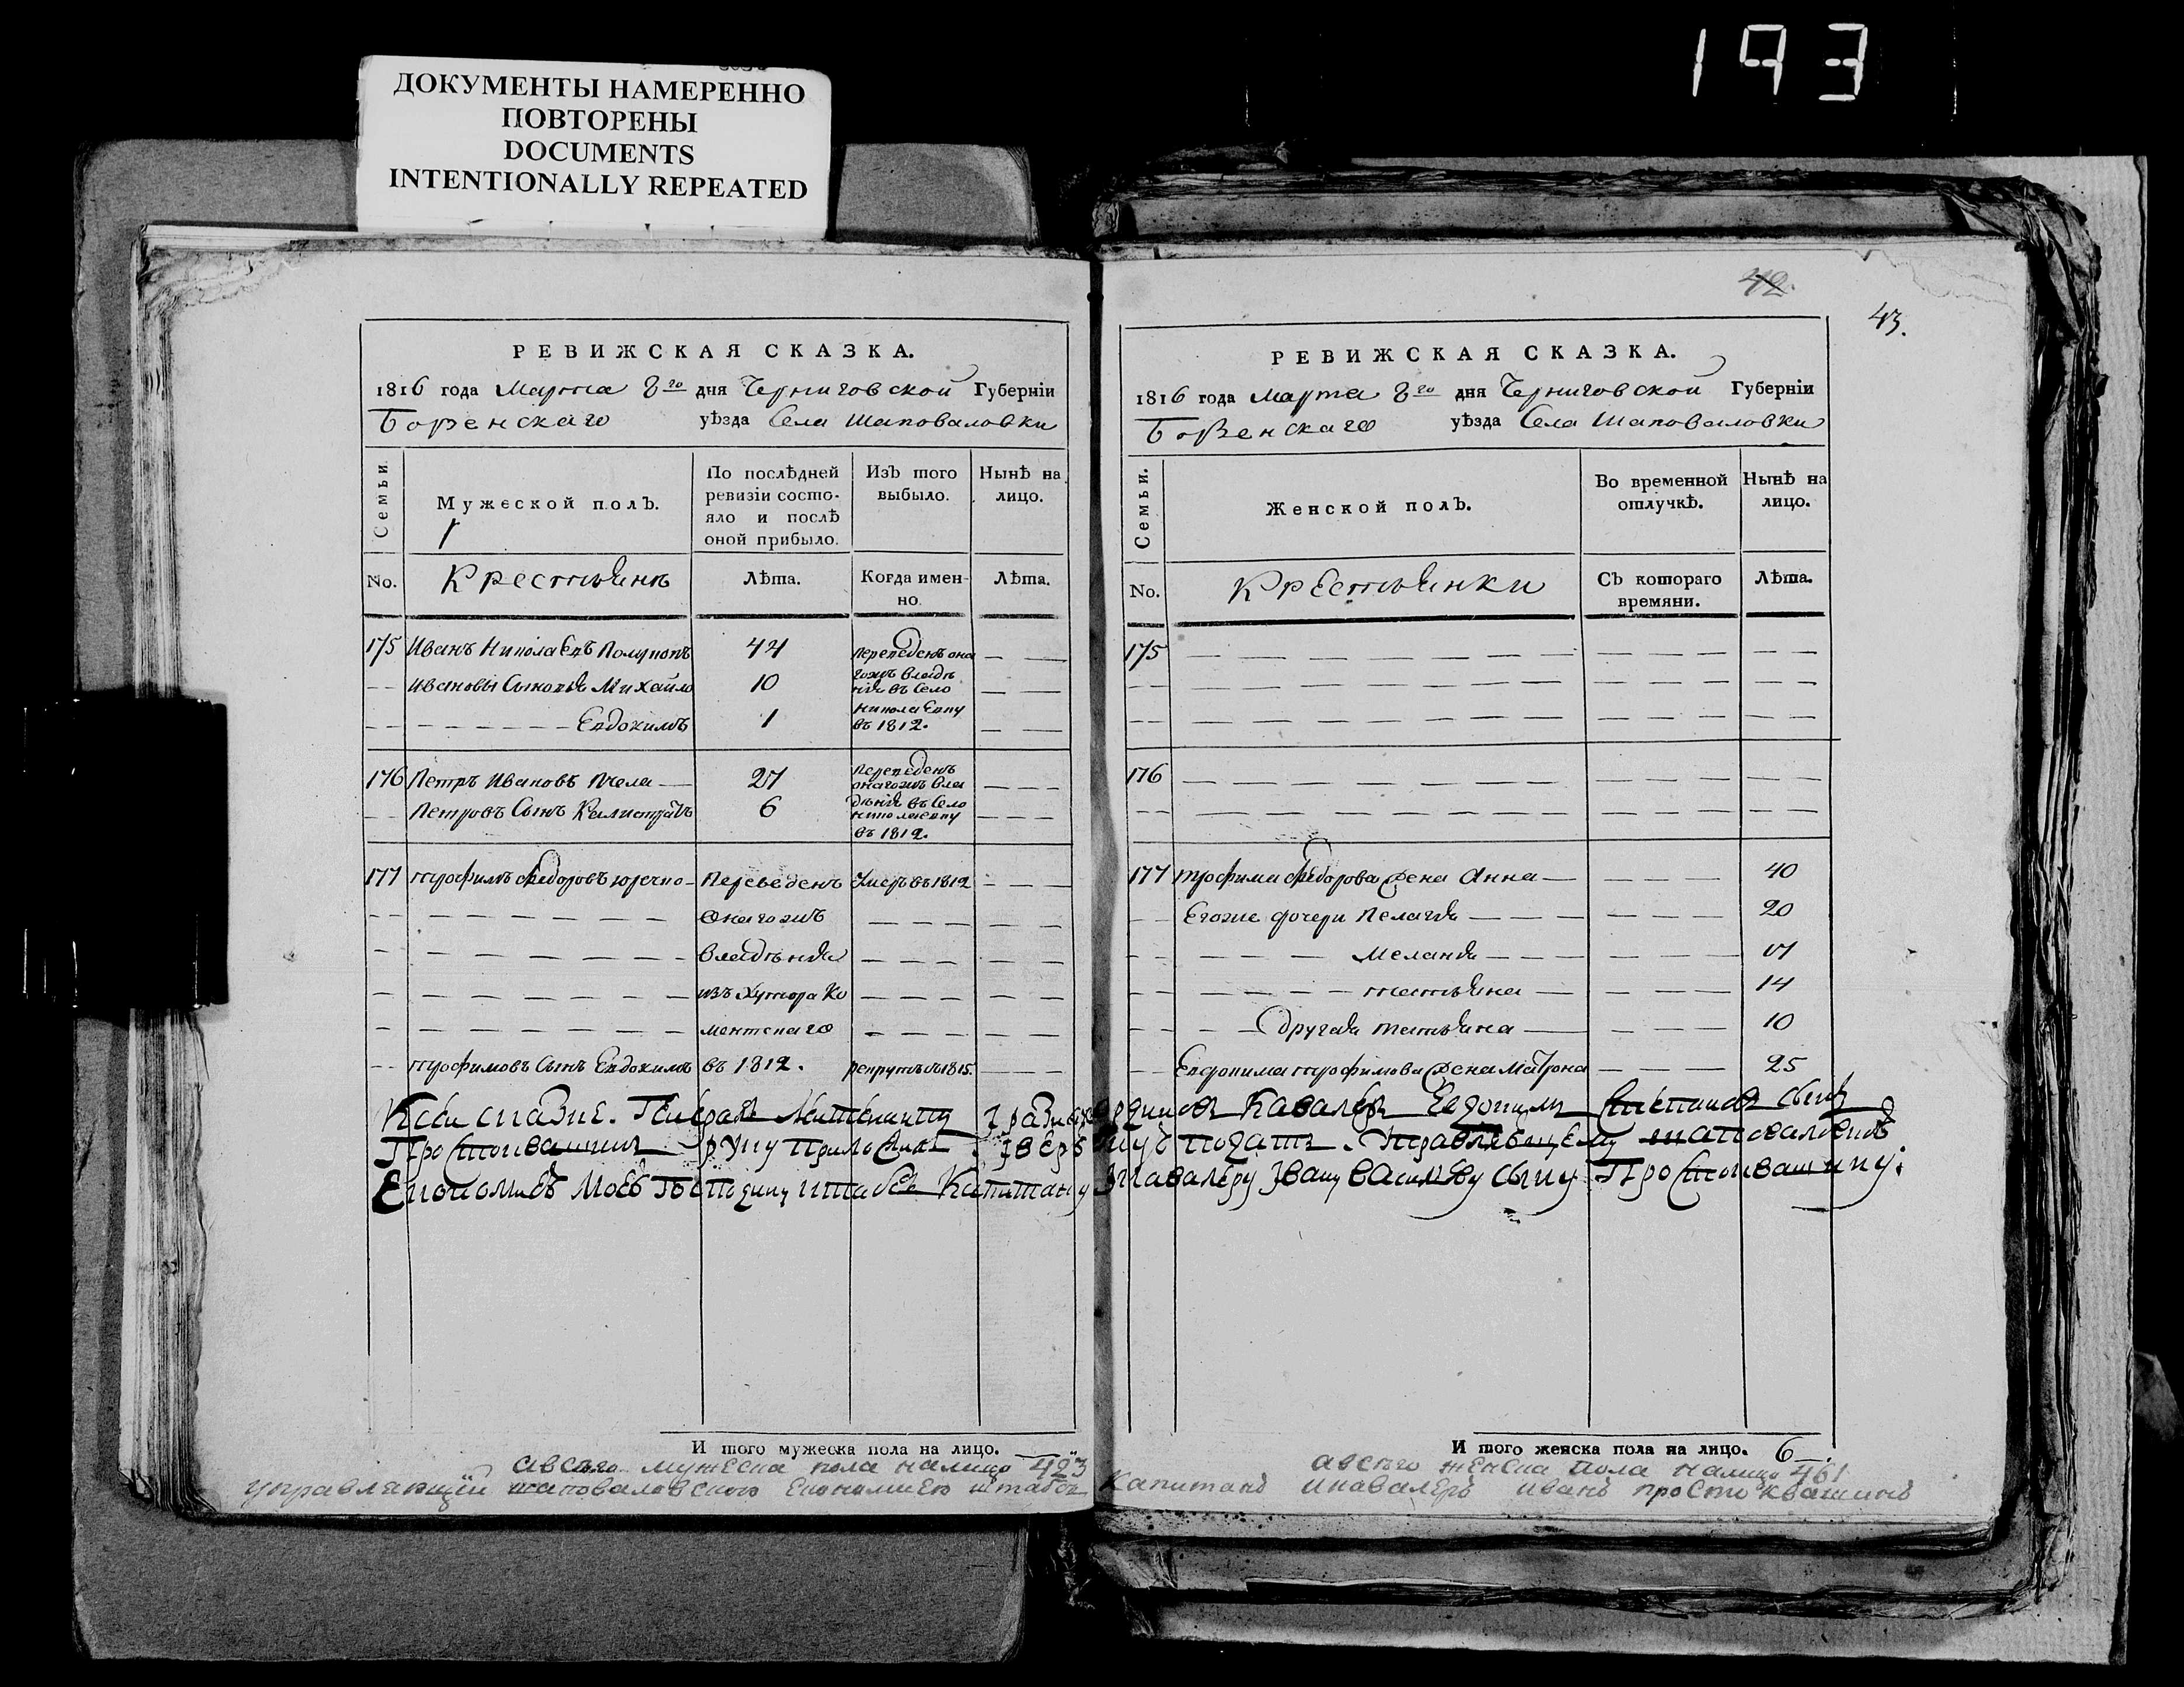 193
ДОКУМЕНТЫ НАМЕРЕННО
ПОВТОРЕНЫ
DOCUMENTS
INTENTIONALLY REPEATED
РЕВИЖСКАЯ СКАЗКА.
1816 года Марта 8го дня Черниговской Губерніи
Борзенскаго уѣзда Села Шаповаловки
Семьи.
Мужеской полъ.
По послѣдней ревизіи состояло и послѣ оной прибыло.
Изъ того выбыло.
Нынѣ на лицо.
No.
Крестьянѣ
Лѣта.
Когда именно.
Лѣта.
175 Иванъ Николаевъ Полупопъ 44 переведенъ она
Ивановы Сыновья Михайло 10 гожъ владѣ
нія въ Село
Евдокимъ 1 Николаевку
въ 1812.
176 Петръ Ивановъ Пчела 27 переведенъ
онагожъ вла
Петровъ Сынъ Калистратъ 6 дѣнія въ Село
Николаевку
въ 1812.
177 Трофимъ Федоровъ Юрченко Переведенъ Умеръ въ 1812
Онагожъ
Владѣнія
изъ Хутора Ко
ментскаго
Трофимовъ Сынъ Евдокимъ въ 1812. рекрутъ въ 1815.
42.
43.
РЕВИЖСКАЯ СКАЗКА.
1816 года Марта 8го дня Черниговской Губерніи
Борзенскаго уѣзда Села Шаповаловки
Семьи.
Женской полъ.
Во временной отлучкѣ.
Нынѣ на лицо.
No.
Крестьянки
Съ котораго времяни.
Лѣта.
175
176
177 Трофима Федорова жена Анна 40
Егоже дочери Пелагія 20
Меланія 17
Татьяна 14
Другая Татьяна 10
Евдокима Трофимова жена Матрона 25
Ксей сказке Генералъ Кавалеръ Евдокимъ Степановъ сынъ
Простоквашинъ руку приложилъ подать Управляющему Шаповаловской
Економией Моей Господину штабсъ Капитану Икавалеру Ивану Васильеву сыну Простоквашину:
И того мужеска пола на лицо.
авсего мужеска пола налицо 423
И того женска пола на лицо. 6
авсего женска пола налицо 461
управляющій шаповаловскою Економиею штабсъ Капитанъ Икавалеръ иванъ простоквашинъ